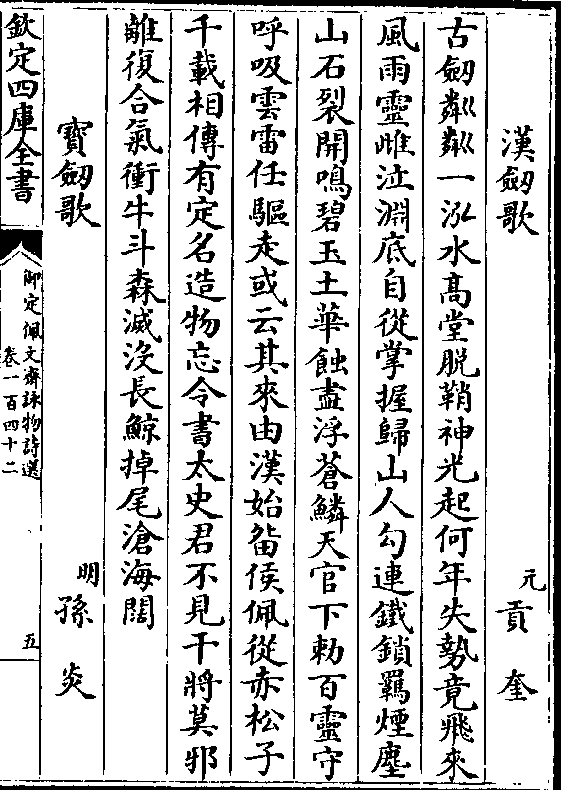 漢劔歌
元 貢奎
古劔粼粼一泓水高堂脱鞘神光起何年失勢竟飛來
風雨靈雌泣淵底自從掌握歸山人勾連鐵鎖羈煙塵
山石裂開鳴碧玉土華蝕盡浮蒼鱗天官下勅百靈守
呼吸雲雷任驅走或云其來由漢始畱侯佩從赤松子
千載相傳有定名造物忘令書太史君不見干將莫邪
離復合氣衝牛斗森滅没長鯨掉尾滄海闊
寶劔歌
明 孫炎
欽定四庫全書
御定佩文齋詠物詩選
卷一百四十二
五